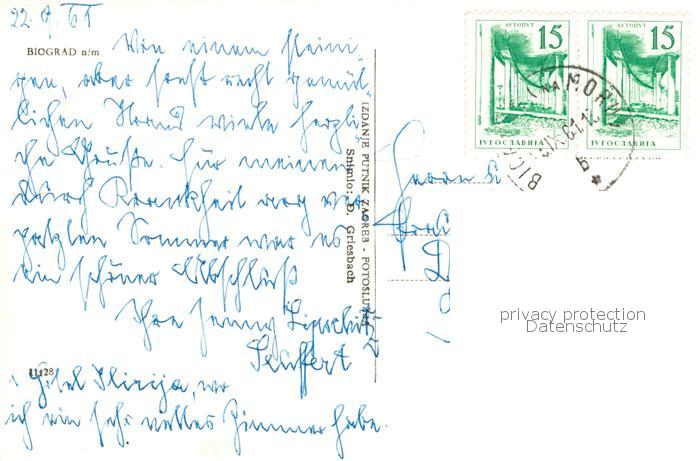 22.9.61
BIOGRAD n/m
Von einem steini-
gen, aber sonst recht gemüt-
lichen Strand viele herzli-
che Grüße. Für meinen
durch Krankheit arg ver-
patzten Sommer war es
ein schöner Abschluß
Ihre Jenny
Seufert
11128
Hotel Ilirija, wo
ich ein sehr nettes Zimmer habe.
IZDANJE PUTNIK ZAGREB - FOTOSLUŽBA
Snimio: D. Griesbach
Herrn u.
Frau
D
АУТОПУТ
15
ЈУГОСЛАВИЈА
АУТОПУТ
15
ЈУГОСЛАВИЈА
NA MORU
privacy protection
Datenschutz